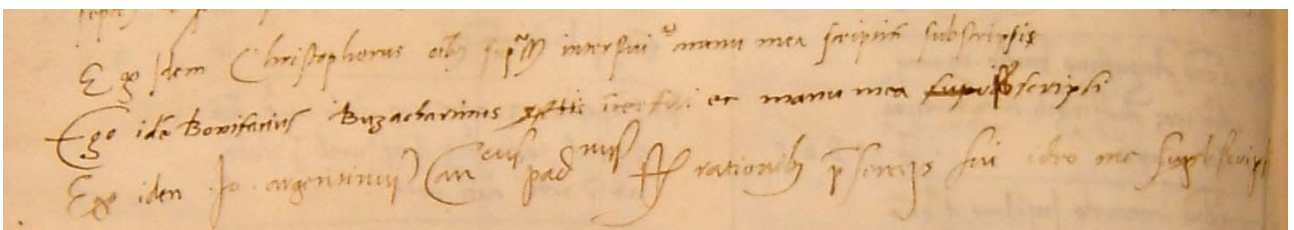 Ego Idem Christophorus oībꝫ sup.tis interfui et manu mea scripsi subscripsi
Ego idē Bonifacius Buzacharinus testis īterfui et manu mea subscripsi
Ego iden Jo. argentinus Can cus pad nus rationibꝫ p̄sens fui ideo me subscripsi